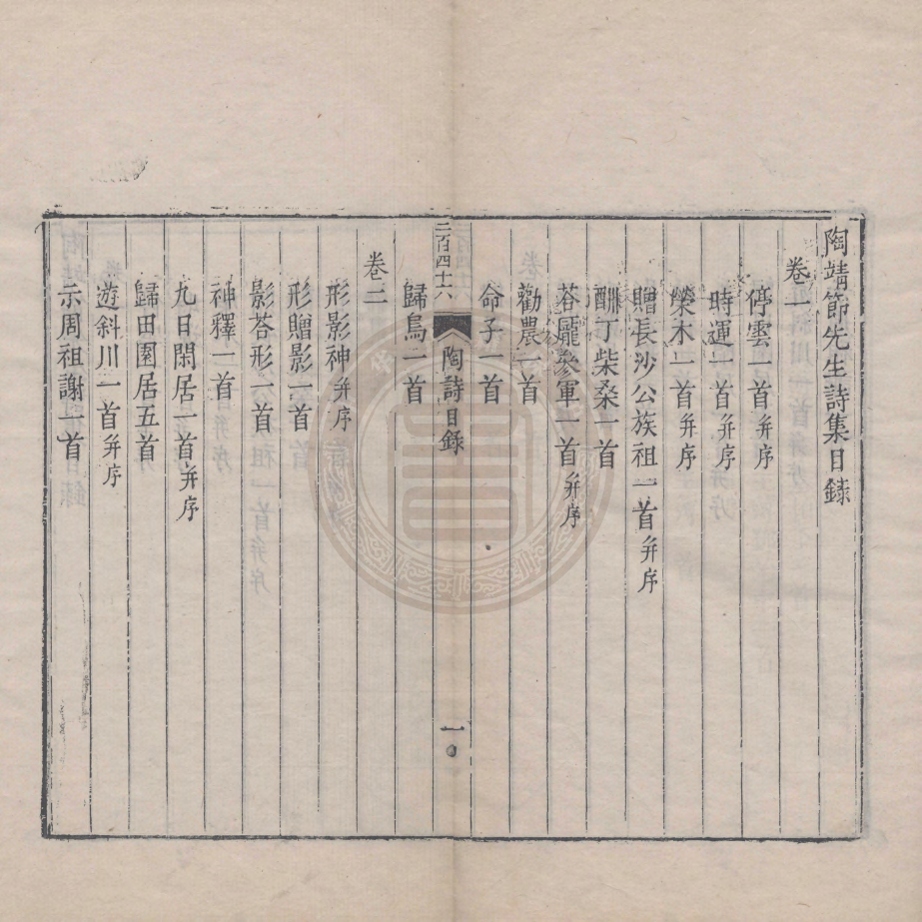 陶靖節先生詩集目錄
卷一
停雲一首并序
時運一首并序
榮木一首并序
贈長沙公族祖一首并序
酬丁柴桑一首
荅龐參軍一首并序
勸農一首
命子一首
歸鳥一首
二百四十六
陶詩目錄
一
卷二
形影神并序
形贈影一首
影荅形一首
神釋一首
九日閑居一首并序
歸田園居五首
遊斜川一首并序
示周祖謝一首